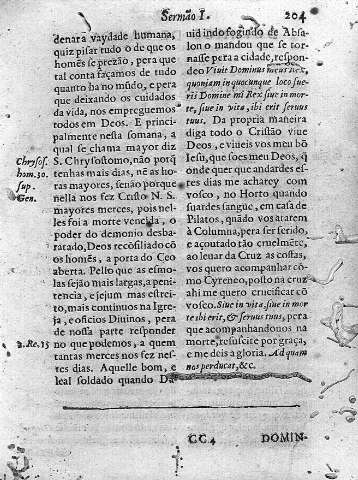 Sermão I. 204
denar a vaydade humana,
quiz pisar tudo o de que os
homẽs se prezão, pera que
tal conta façamos de tudo
quanto ha no mũdo, e pera
que deixando os cuidados
da vida, nos empreguemos
todos em Deos. E princi-
palmente nesta somana, a
qual se chama mayor diz
S. Chrysostomo, não porq̃
tenhas mais dias, nẽ as ho-
ras mayores, senão porque
nella nos fez Cristo N. S.
mayores merces, pois nel-
les foi a morte vencida, o
poder do demonio desba-
ratado, Deos recõsiliado cõ
os homẽs, a porta do Ceo
aberta. Pello que as esmo-
las sejão mais largas, a peni-
tencia, e jejum mas estrei-
to, mais continuos na Igre-
ja, e oficios Divinos, pera
de nossa parte responder
no que podemos, a quem
tantas merces nos fez nes-
tes dias. Aquelle bom, e
leal soldado quando Da
Chrysos.
hom. 30.
sup.
Gen.
2. Re. 15
uid indo fogindo de Absa-
lon o mandou que se tor-
nasse pera a cidade, respon-
deo Vivit Dominus meus Rex,
quoniam in quocunque loco fue-
ris Domine mi Rex siue in mor-
te, siue in vita, ibi erit seruus
tuus. Da propria maneira
diga todo o Cristão viue
Deos, e viueis vos meu bõ
Iesu, que soes meu Deos, q̃
onde quer que andardes es-
tes dias me acharey com
vosco, no Horto quando
suardes sangue, em casa de
Pilatos, quãdo vos atarem
à Columna, pera ser ferido,
e açoutado tão cruelmẽte,
ao leuar da Cruz as costas,
vos quero acompanhar co-
mo Cyreneo, posto na cruz
ahi me quero crucificar cõ
vosco. Siue in vita, siue in mor
te ibi erit, & seruus tuus, pera
que acompanhandonos na
morte, resuscite por graça,
e me deis a gloria. Ad quam
nos perducat, &c.
CC4 DOMIN-